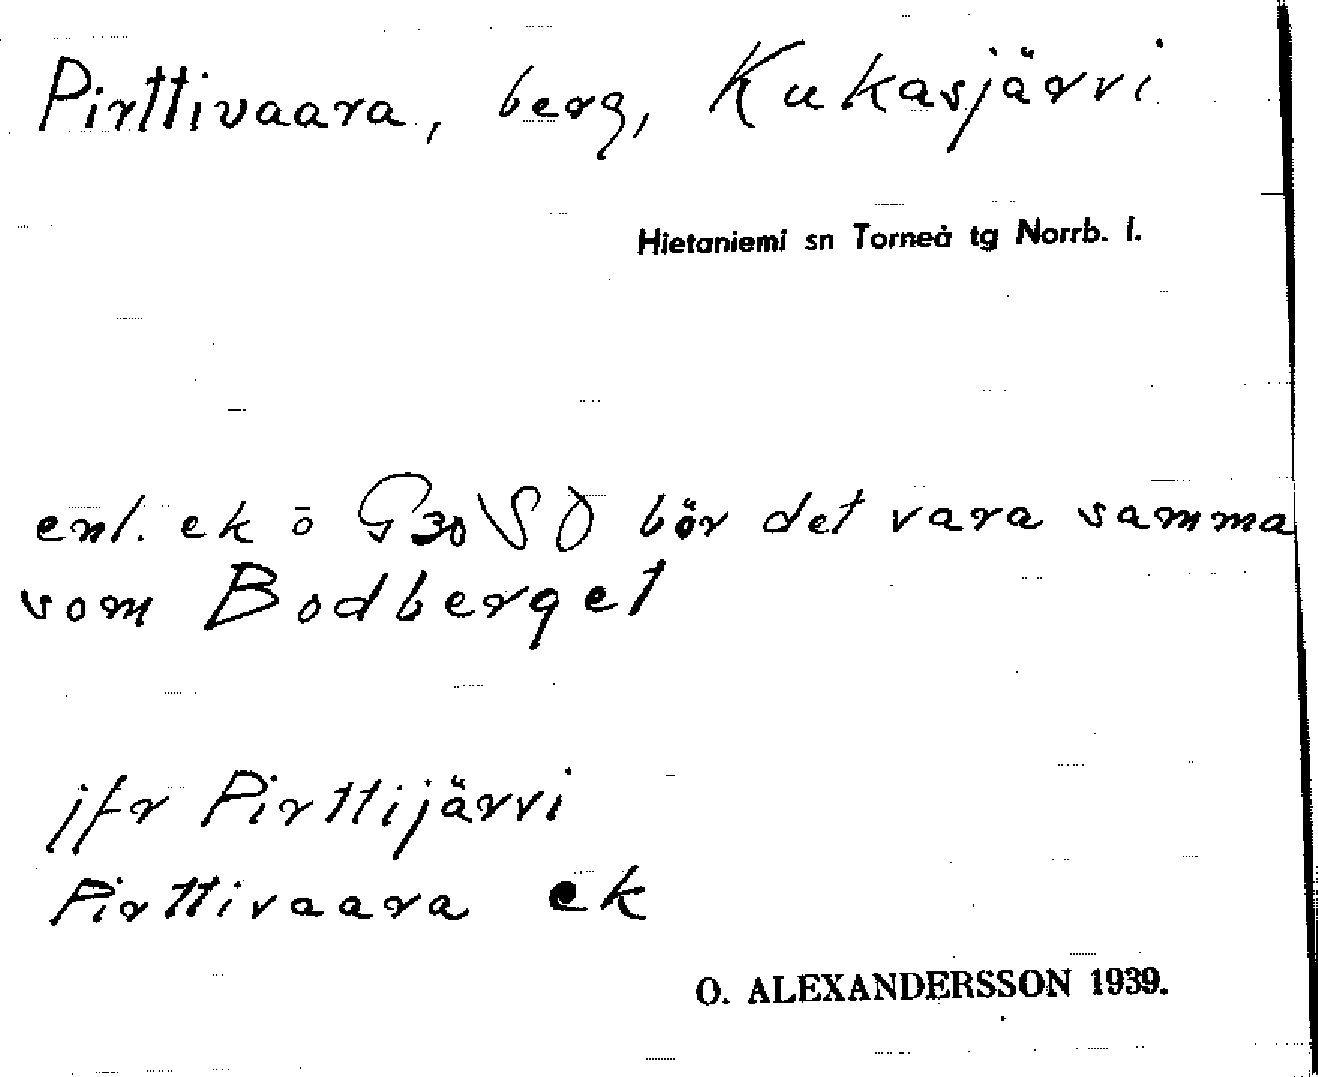 Pirttivaara, berg, Kukasjärvi
Hietaniemi sn Torneå tg Norrb. l.
enl. ek ö G30SO bör det vara samma
som Bodberget
jfr Pirttijärvi
Pirttivaara ek
O. ALEXANDERSSON 1939.